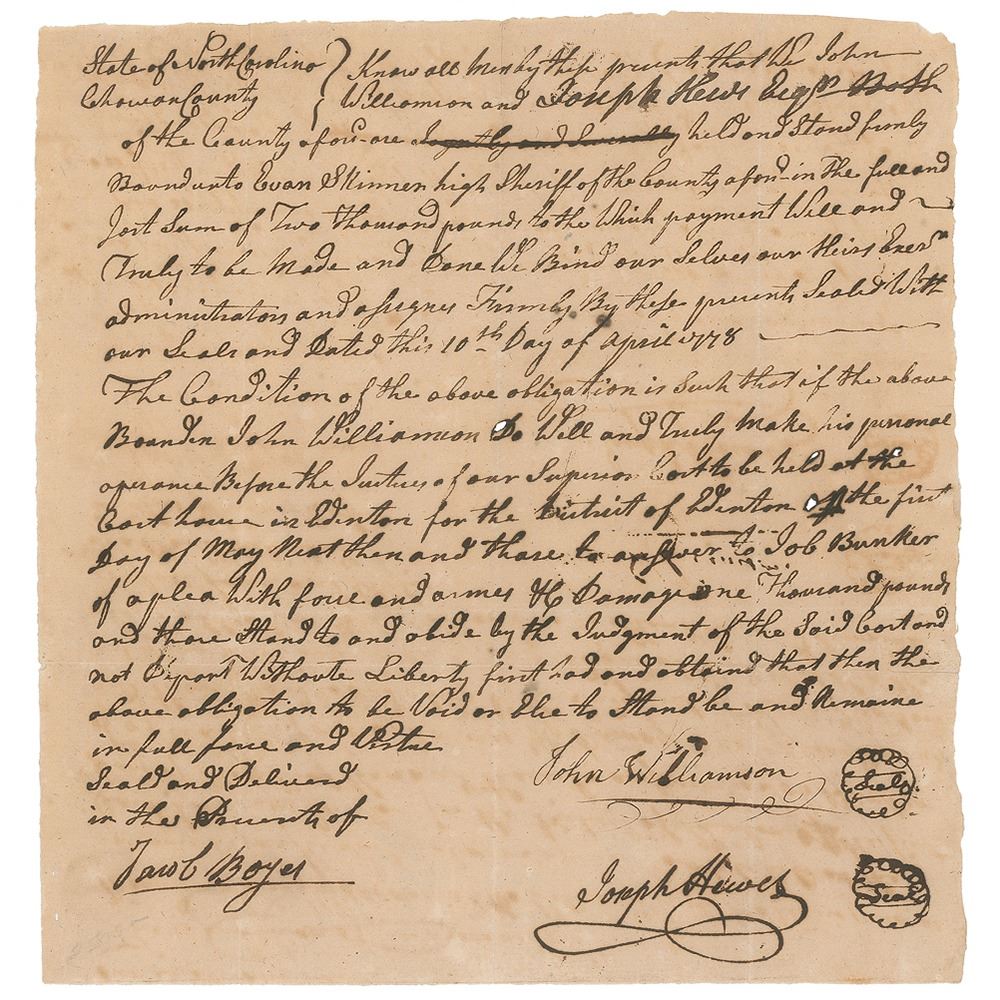 State of North Carolina } Know all Men by these presents that We John
Chowan County } Williamson and Joseph Hews Esqr. Both
of the County afors. are Joyntly and Severally held and Stand firmly
Bound unto Evan Skinner high Sheriff of the County afors. in the full and
Jost Sum of Two thousand pounds to the Which payment Will and
Truly to be Made and Done We Bind our Selves our Heirs Exers.
administrators and assignes Firmly By these presents Sealed With
our Seals and Dated this 10th Day of April 1778
The Condition of the above obligation is Such that if the above
Boanden John Williamson Do Well and Truly Make his personal
aperance Before the Justices of our Superior Cort to be held at the
Cort house in Edenton for the District of Edenton the first
Day of May Next then and thare to answer to Job Bunker
of a plea With force and armes &c Damage one Thousand pounds
and thare Stand to and abide by the Judgment of the Said Cort and
not Depart Withoute Liberty first had and obtaind that then the
above obligation to be Void or Else to Stand be and Remaine
in full force and Virtue
Seald and Deliverd
in the Presents of
John Williamson Seal
Jacob Boyes
Joseph Hewes Seal